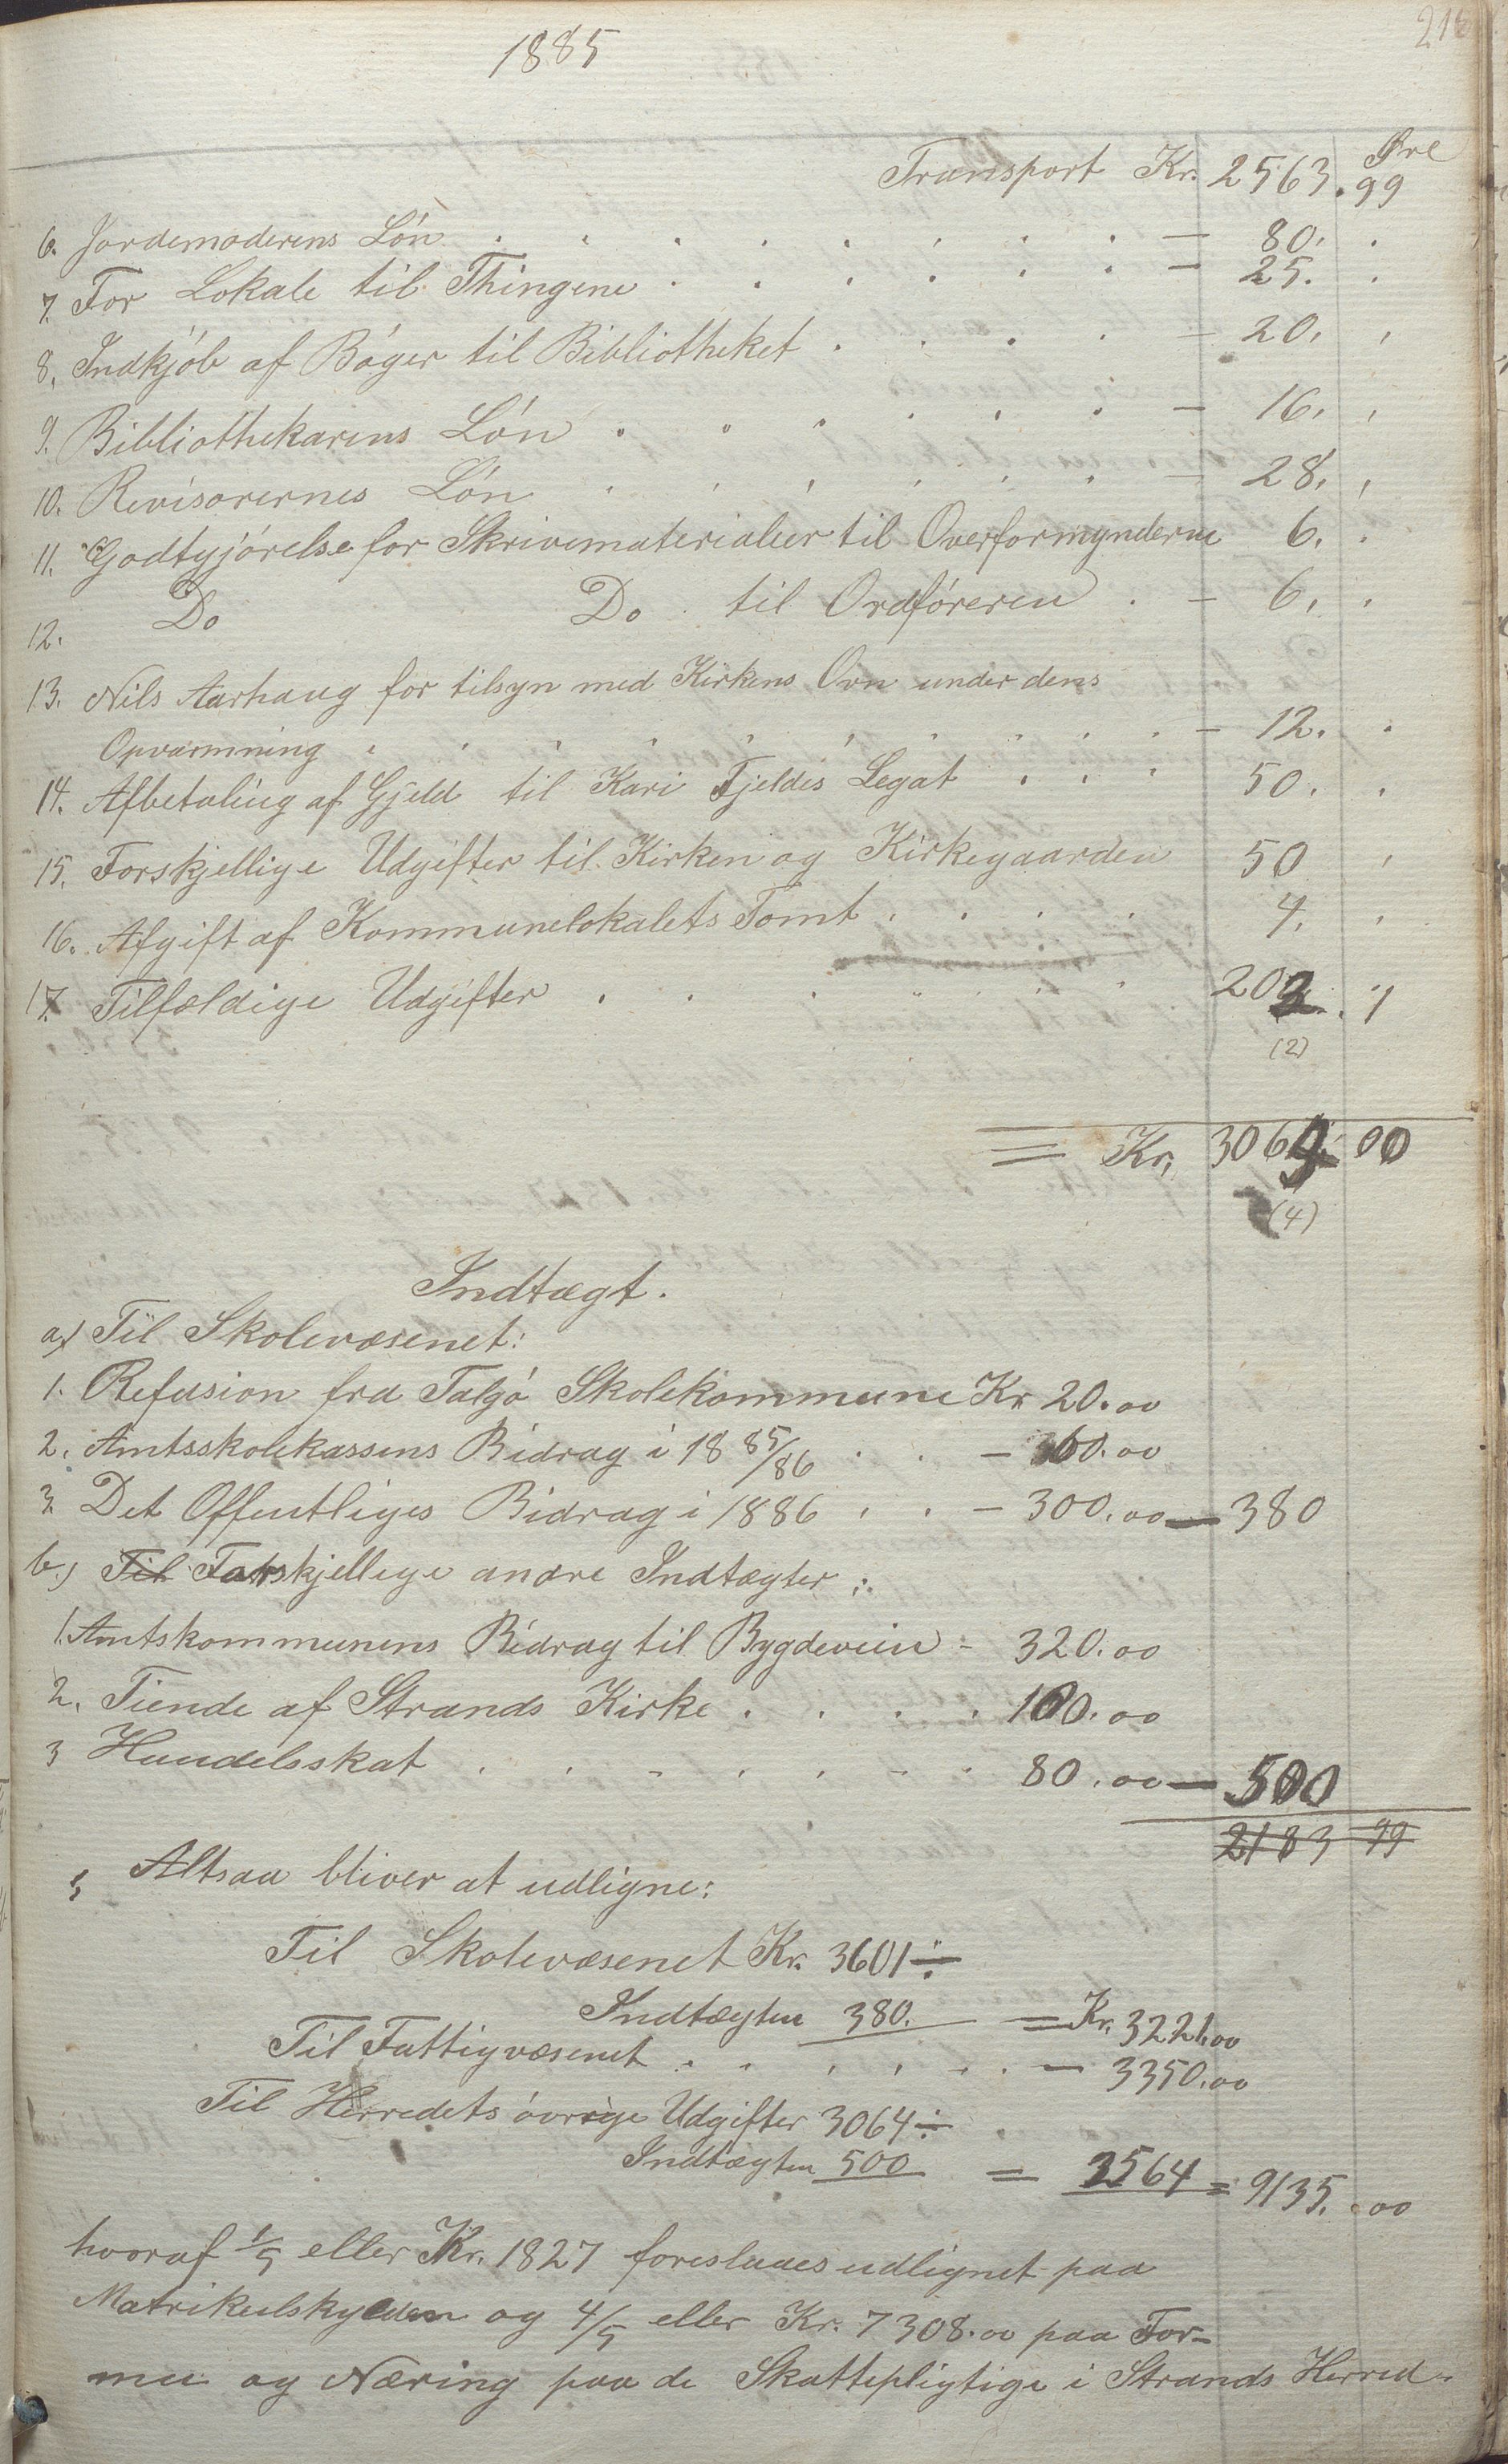 1885
Øre
Transport Kr. 2563. 99
6. Jordemoderens Løn . . . . . . . . — 80. .
7. For Lokale til Thingene . . . . . . — 25. .
8. Indkjøb af Bøger til Bibliotheket . . . . — 20. .
9. Bibliothekarens Løn . . . . . . — 16. .
10. Revisorernes Løn . . . . . . — 28. .
11. Godtgjørelse for Skrivematerialier til Overformynderne 6. .
12. Do Do til Ordføreren . — 6. .
13. Nils Aarhaug for tilsyn med Kirkens Ovn under dens
Opvarmning . . . . . . . . . . — 12. .
14. Afbetaling af Gjeld til Kari Fjeldes Legat . . . 50. .
15. Forskjellige Udgifter til Kirken og Kirkegaarden 50 .
16. Afgift af Kommunelokalets Tomt . . . . 4. .
17. Tilfældige Udgifter . . . . . . 202. 1
(2)
= Kr. 3064 00
(4)
Indtægt.
a) Til Skolevæsenet:
1. Refusion fra Talgø Skolekommune Kr 20.00
2. Amtsskolekassens Bidrag i 1885/86 . . — 60.00
3. Det Offentliges Bidrag i 1886 . . — 300.00 — 380
b.) Til Forskjellige andre Indtægter :
1. Amtskommunens Bidrag til Bygdeveien - 320.00
2. Tiende af Strands Kirke . . . . 100.00
3 Handelsskat . . . . . . . 80.00 — 500
2183 99
Altsaa bliver at udligne:
Til Skolevæsenet Kr. 3601 ÷
Indtægten 380. = Kr. 3221.00
Til Fattigvæsenet . . . . . . — 3350.00
Til Herredets øvrige Udgifter 3064 ÷
Indtægten 500 = 2564 = 9135. 00
hvoraf 1/5 eller Kr. 1827 foreslaaes udlignet paa
Matrikulskylden og 4/5 eller Kr. 7308.00 paa For-
mue og Næring paa de Skattepligtige i Strands Herred.